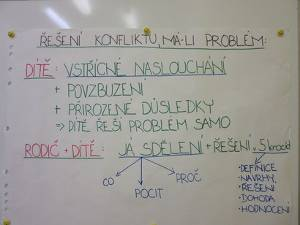 ŘEŠENÍ KONFLIKTU, MÁ-LI PROBLÉM:
DÍTĚ: VSTŘÍCNÉ NASLOUCHÁNÍ
+ POVZBUZENÍ
+ PŘIROZENÉ DŮSLEDKY
⇒ DÍTĚ ŘEŠÍ PROBLÉM SAMO
RODIČ + DÍTĚ: JÁ SDĚLENÍ + ŘEŠENÍ v 5 krocích
CO
POCIT
PROČ
• DEFINICE
• NÁVRHY
• ŘEŠENÍ
• DOHODA
• HODNOCENÍ